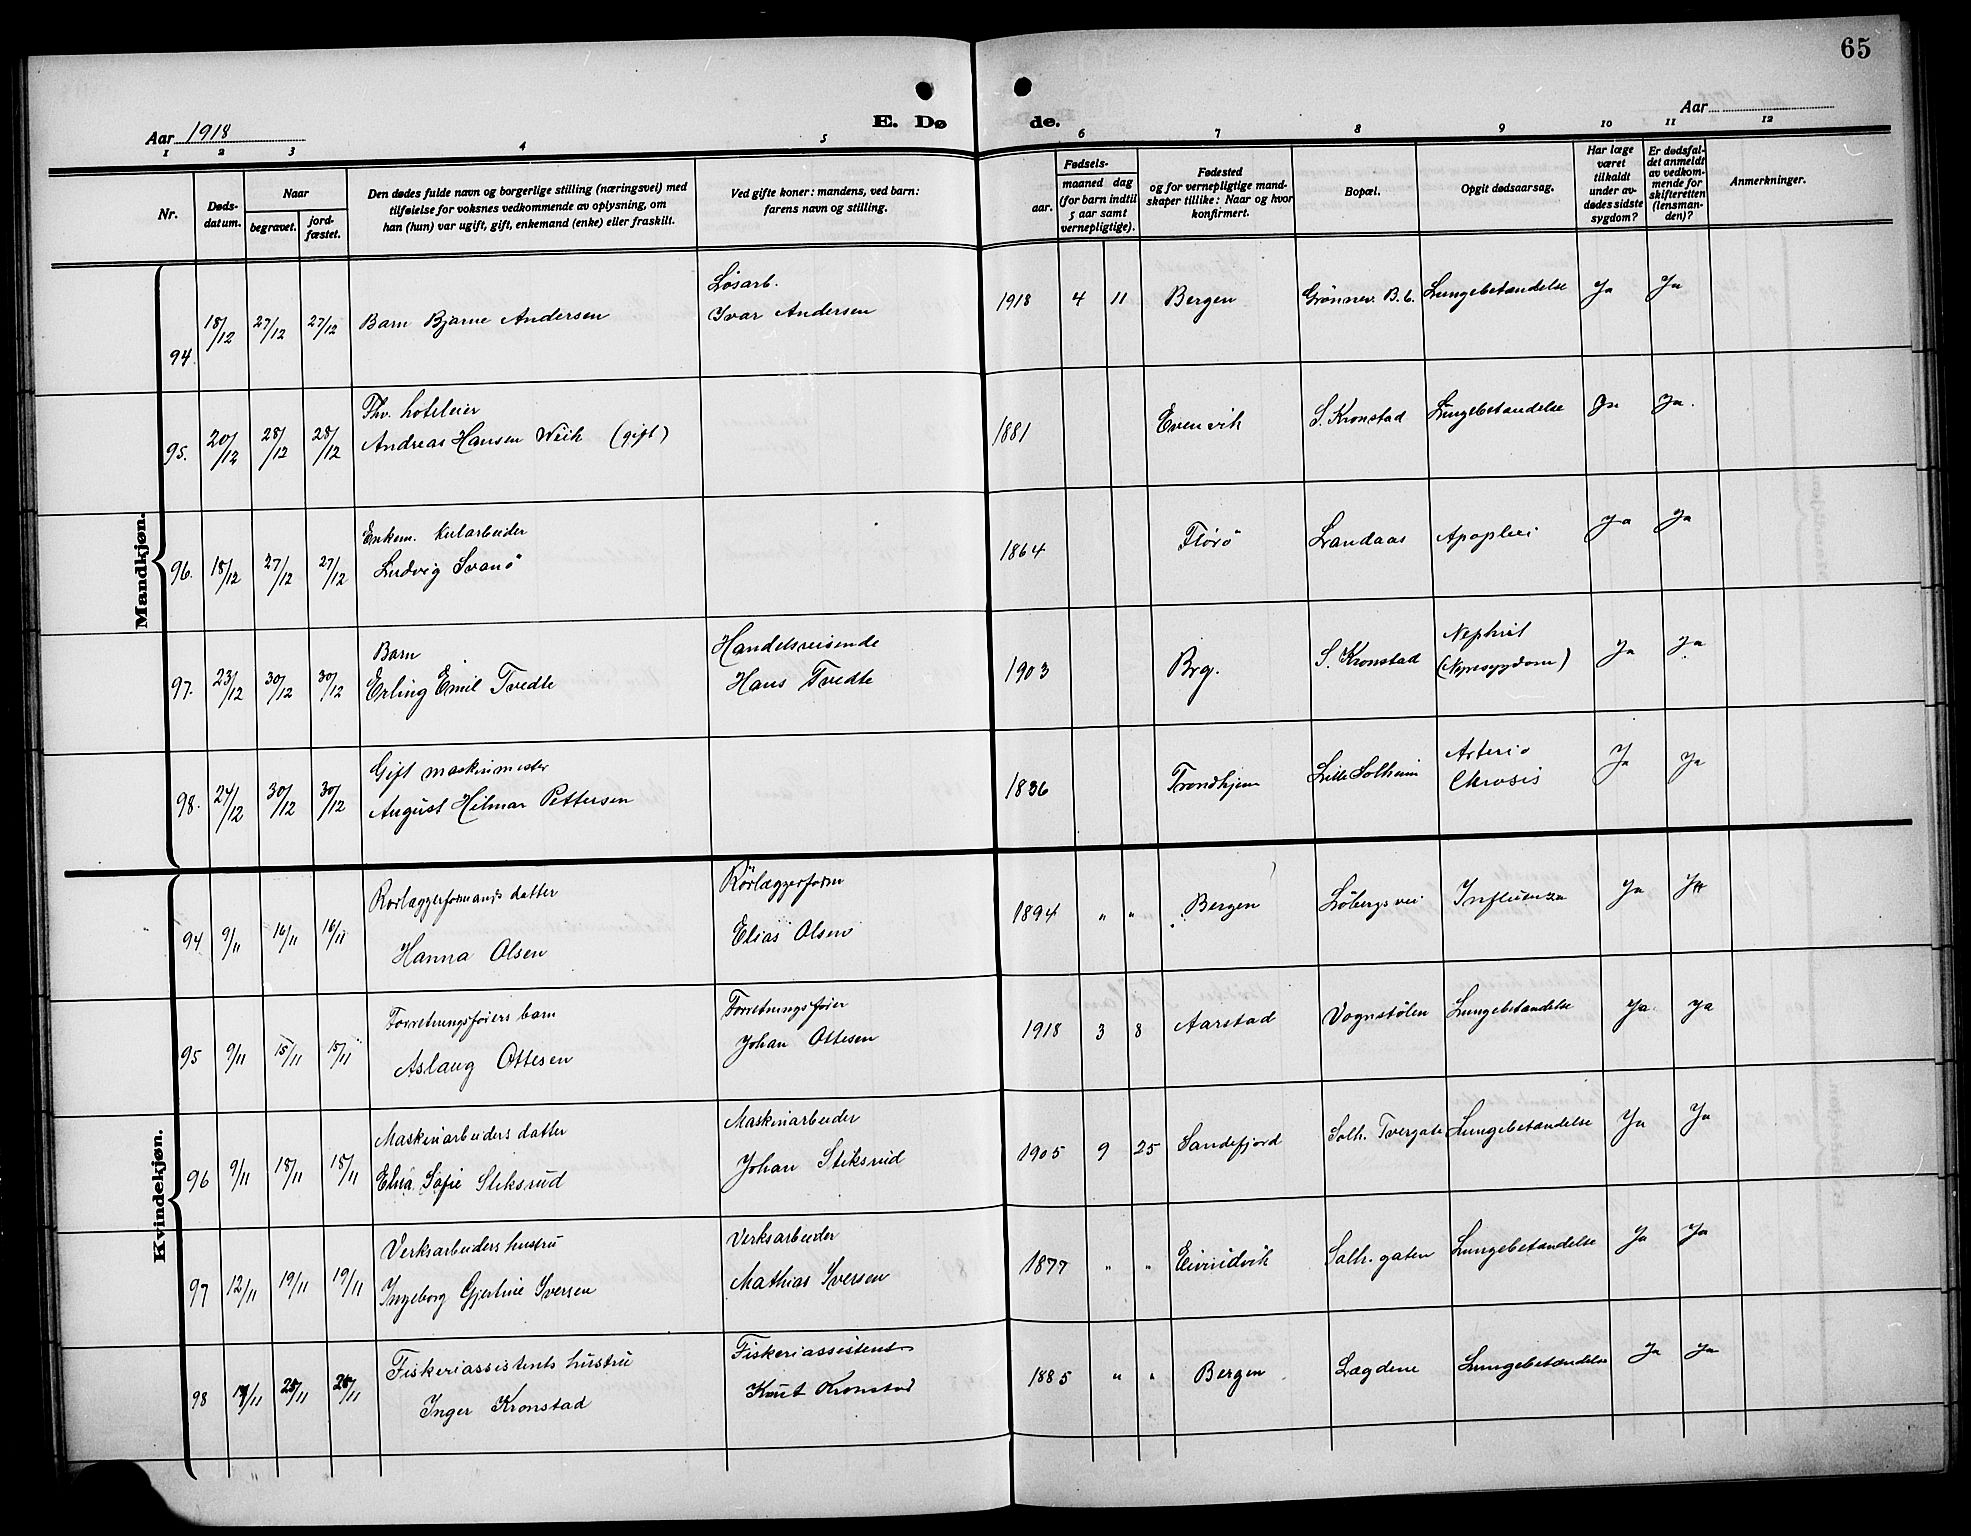 65
Aar 1918
E. Dø
de.
Aar
1 2 3 4 5 6 7 8 9 10 11 12
Nr.
Døds-
datum.
Naar
begravet.
jord-
fæstet.
Den dødes fulde navn og borgerlige stilling (næringsvei) med
tilføielse for voksnes vedkommende av oplysning, om
han (hun) var ugift, gift, enkemand (enke) eller fraskilt.
Ved gifte koner: mandens, ved barn:
farens navn og stilling.
Fødsels-
aar.
maaned dag
(for barn indtil
5 aar samt
vernepligtige).
Fødested
og for vernepligtige mand-
skaper tillike: Naar og hvor
konfirmert.
Bopæl.
Opgit dødsaarsag.
Har læge
været
tilkaldt
under av-
dødes sidste
sygdom?
Er dødsfal-
det anmeldt
av vedkom-
mende for
skifteretten
(lensman-
den)?
Anmerkninger.
Mandkjøn.
Løsarb.
94. 18/12 27/12 27/12 Barn Bjarne Andersen Ivar Andersen 1918 4 11 Bergen Grønnev. B. 6. Lungebetændelse Ja Ja
Fhv. hoteleier
95. 20/12 28/12 28/12 Andreas Hansen Weih (gift) 1881 Evenvik S. Kronstad Lungebetændelse Ja Ja.
Enkem. Kularbeider
96. 18/12 27/12 27/12 Ludvig Svanö 1864 Florö Landaas Apoplexi Ja Ja
Barn Handelsreisende Nephrit
97. 23/12 30/12 30/12 Erling Emil Tvedte Hans Tvedte 1903 Brg. S. Kronstad (Nyresygdom) Ja Ja
Gift maskinmester Arterio
98. 24/12 30/12 30/12 August Hilmar Pettersen 1836 Trondhjem Lille Solheim Clerosis Ja Ja
Kvindekjøn.
Rorlæggerformands datter Rörlæggerform
94 9/11 16/11 16/11 Hanna Olsen Elias Olsen 1894 " " Bergen Løbergsvei Influenza Ja Ja
Forretningsføiers barn Forretningsføier
95 9/11 15/11 15/11 Aslaug Ottesen Johan Ottesen 1918 3 8 Aarstad Vognstølen Lungebetændelse Ja Ja
Maskinarbeiders datter Maskinarbeider
96 9/11 18/11 18/11 Elna Sofie Stiksrud Johan Stiksrud 1905 9 25 Sandefjord Solh. Tvergate Lungebetændelse Ja Ja
Verksarbeiders hustru Verksarbeider
97 12/11 19/11 19/11 Ingeborg Gjertine Iversen Mathias Iversen 1877 " " Eivindvik Solh. gaten Lungebetændelse Ja Ja
Fiskeriassistents hustru Fiskeriassistent
98 Inger Kronstad Knut Kronstad 1885 " " Bergen Lægdene Lungebetændelse Ja Ja